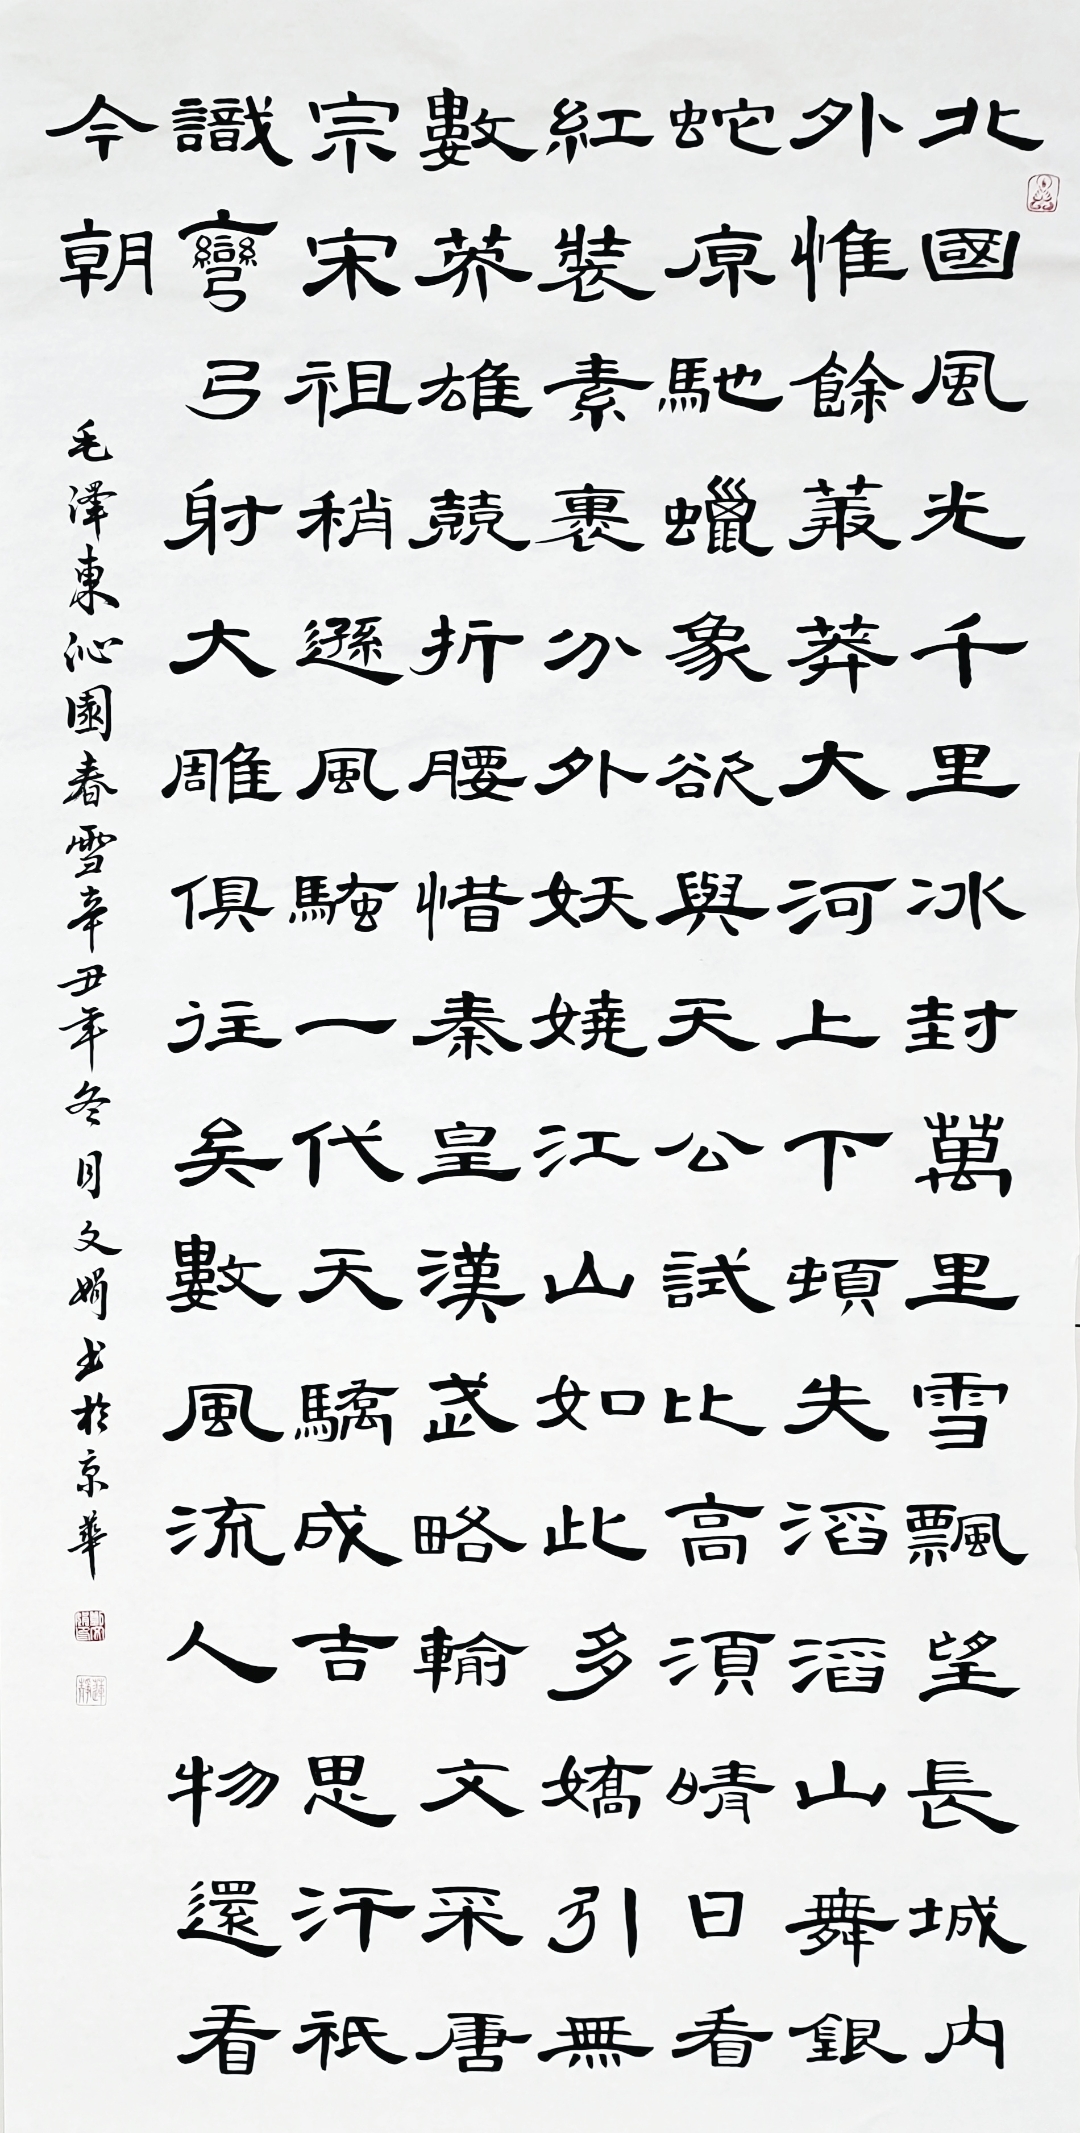 北國風光千里冰封萬里雪飄望長城内
外惟餘菆莽大河上下頓失滔滔山舞銀
蛇原馳蠟象欲與天公試比高須晴日看
紅裝素裹分外妖嬈江山如此多嬌引無
數英雄競折腰惜秦皇漢武略輸文采唐
宗宋祖稍遜風騷一代天驕成吉思汗祇
識彎弓射大雕俱往矣數風流人物還看
今朝
毛澤東沁園春雪辛丑年冬月文娟书於京華